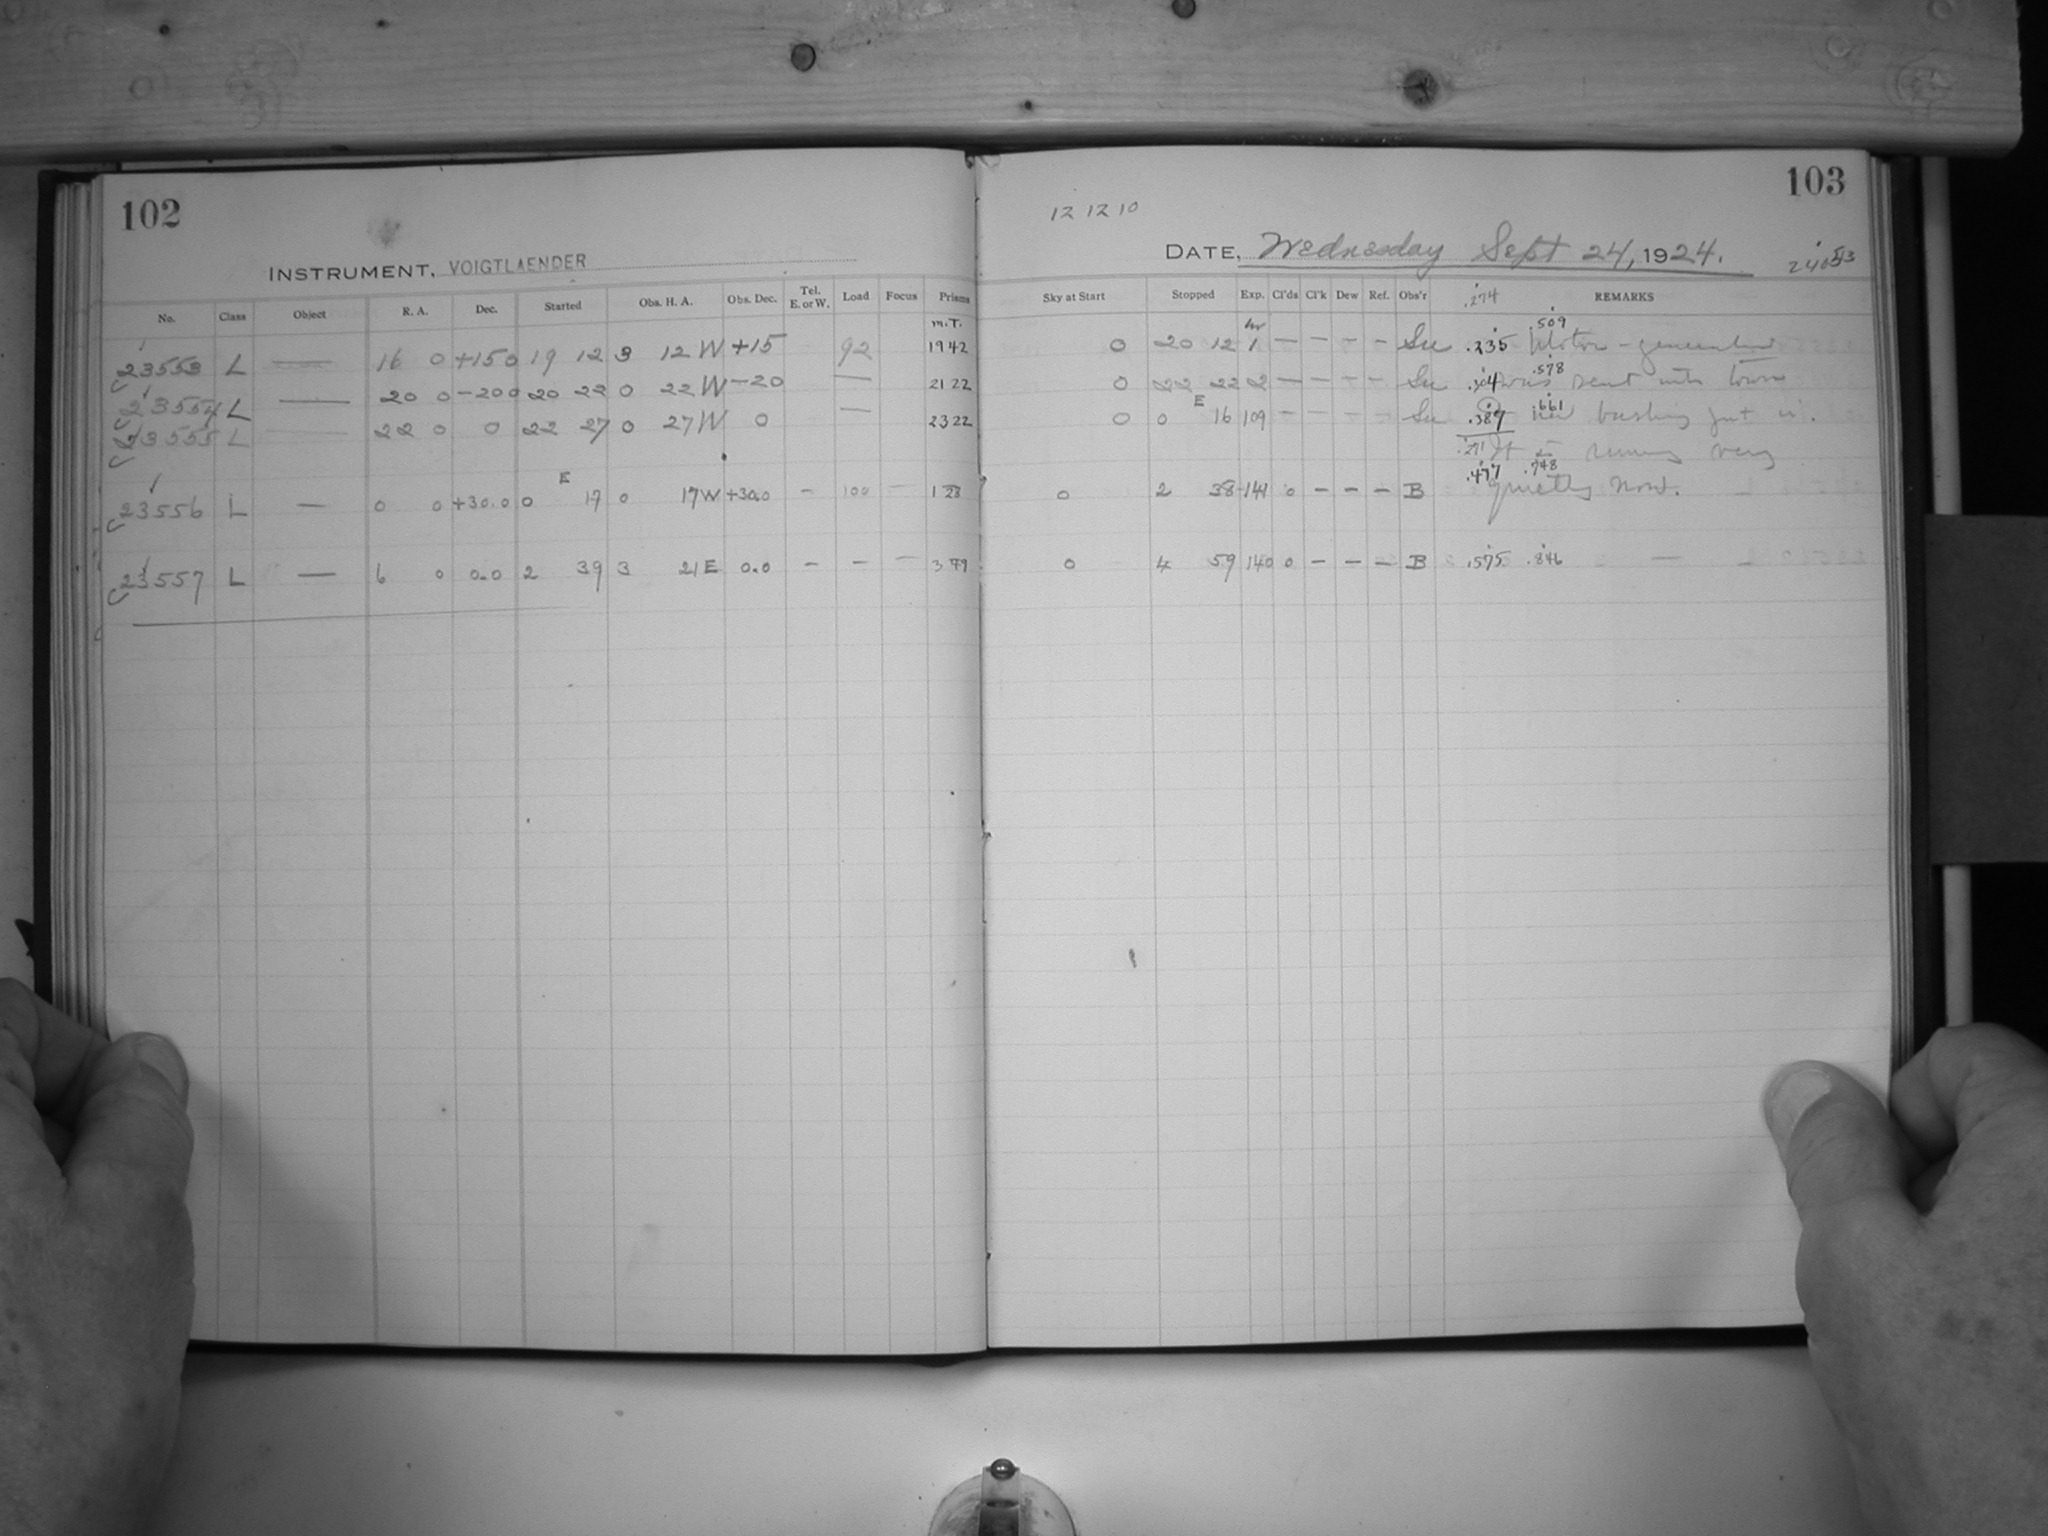 102
INSTRUMENT, VOIGTLAENDER
No. Class Object R. A. Dec. Started Obs. H. A. Obs. Dec. Tel. E. or W. Load Focus Prisms
m.T.
23553 L — 16 0 +15 0 19 12 3 12 W +15 92 19 42
23554 L — 20 0 -20 0 20 22 0 22 W -20 — 21 22
23555 L — 22 0 0 22 27 0 27 W 0 — 23 22
23556 L — 0 0 +30.0 0 E 17 0 17 W +30.0 - 100 — 1 28
23557 L — 6 0 0.0 2 39 3 21 E 0.0 - - — 3 49
103
12 12 10
DATE, Wednesday Sept 24, 1924.
Sky at Start Stopped Exp. Cl'ds Cl'k Dew Ref. Obs'r REMARKS
.274
hr .509
0 20 12 1 — — — — Su .235 Motor-generator
.578
0 22 22 2 — — - - Su .304 was sent into town
.661
0 0 E 16 109 - - - - Su .387 new bushing put in.
.271 It is running very
.477 .748
0 2 38 141 0 — — — B quietly now.
0 4 59 140 0 — — — B .575 .846